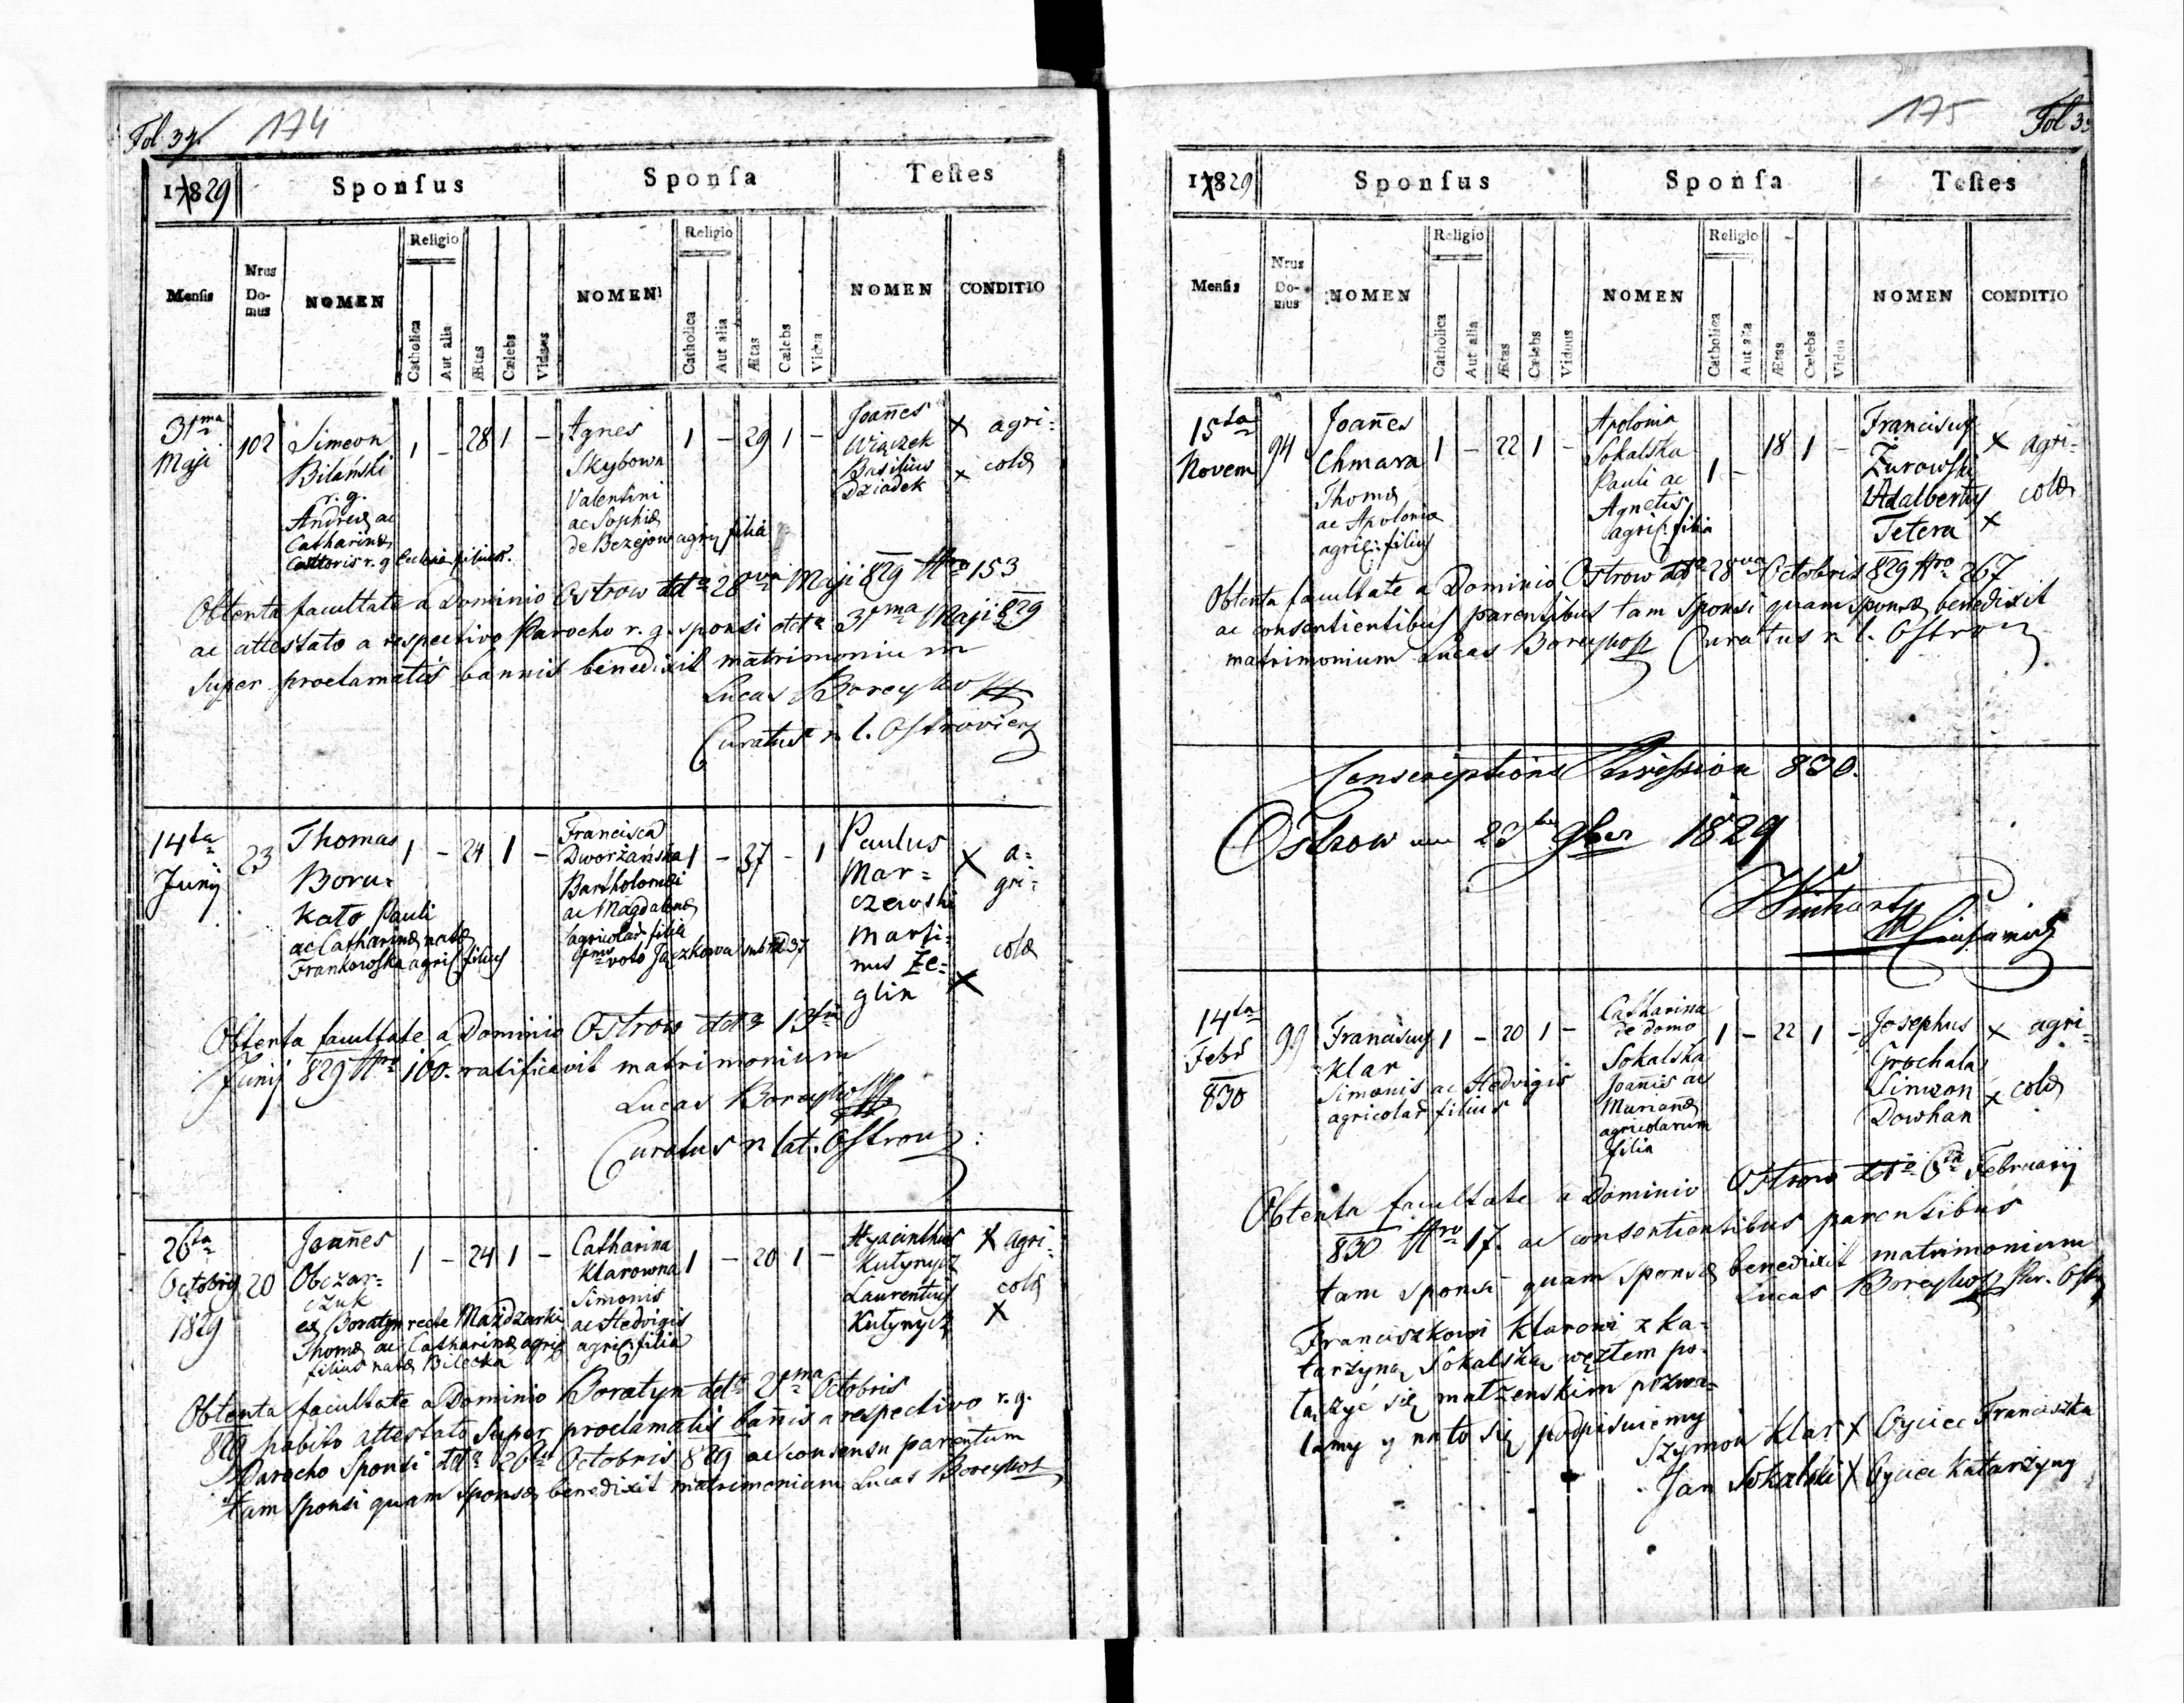 Fol 34. 174
17829 Sponsus Sponsa Testes
Mensis Nrus Do-mus NOMEN Religio Catholica Aut alia Ætas Cælebs Viduus NOMEN Religio Catholica Aut alia Ætas Cælebs Vidua NOMEN CONDITIO
31ma Maji 102
Simeon
Bilański
r. g.
Andreæ ac
Catharinæ
1 – 28 1 –
Agnes
Skybowa
Valentini
ac Sophiæ
de Bezejow agric filia
1 – 29 1 –
Joañes
Wiączek
Basilius
Dziadek
X agri:
X colæ
Obtenta facultate a Dominio Ostrow ddto 28va Maji 829 Nro 153
ac attestato a respectivo Parocho r. g. sponsi ddto 31ma Maji 829
super proclamatis bannis benedixit matrimonium
Lucas Boreyko
Curatus r. l. Ostroviens
14ta Junij 23
Thomas
Boru=
kato Pauli
ac Catharinæ natæ
Frankowska agric filius
1 – 24 1 –
Francisca
Dworżańska
Bartholomæi
ac Magdalenæ
agricolar filia
voto Jaczkowa sub Nro 37
1 – 37 – 1
Paulus
Mar=
czewski
Marti:
nus Że=
glin
X a=
gri=
colæ
X
Obtenta facultate a Dominio Ostrow ddto 13tia
Junij 829 Nro 160. ratificavit matrimonium
Lucas Boreyko
Curatus r. lat. Ostrow:
26ta Octobris 1829 20
Joañes
Obczar=
czuk
ex Boratyn recte Mazdzarki
Thomæ ac Catharinæ agric
filius natæ Bilecka
1 – 24 1 –
Catharina
Klarowna
Simonis
ac Hedvigis
agric: filia
1 – 20 1 –
Hyacinthus
Kutynycz
Laurentius
Kutynycz
X agri:
colæ
X
Obtenta facultate a Dominio Boratyn ddto 21ma Octobris
829 habito attestato super proclamatis bañis a respectivo r. g.
Parocho Sponsi ddto 26ta Octobris 829 ac consensu parentum
tam sponsi quam sponsæ benedixit matrimonium Lucas Boreyko
175 Fol 3
17829 Sponsus Sponsa Testes
Mensis Nrus Do-mus NOMEN Religio Catholica Aut alia Ætas Cælebs Viduus NOMEN Religio Catholica Aut alia Ætas Cælebs Vidua NOMEN CONDITIO
15ta Novem 94
Joañes
Chmara
Thomæ
ac Apolonia
agric: filius
1 – 22 1 –
Apolonia
Sokalska
Pauli ac
Agnetis
agric: filia
1 – 18 1 –
Franciscus
Żurowski
Adalbertus
Tetera
X agri-
colæ
X
Obtenta facultate a Dominio Ostrow ddto 28va Octobris 829 Nro 267
ac consentientibus parentibus tam sponsi quam sponsæ benedixit
matrimonium Lucas Boreyko Curatus r. l. Ostrow
Conscriptions Revission 830.
Ostrow am 23ten 9ber 1829
14ta Febr 830 99
Franciscus
Klar
Simonis ac Hedvigis
agricolar filius
1 – 20 1 –
Catharina
de domo
Sokalska
Joañis ac
Mariañæ
agricolarum
filia
1 – 22 1 –
Josephus
Grochala
Simeon
Dowhan
X agri-
X colæ
Obtenta facultate a Dominio Ostrow ddto 6ta Februarij
830 Nro 17. ac consentientibus parentibus
tam sponsi quam sponsæ benedixit matrimonium
Lucas Boreyko Par. Ostr
Franciszkowi Klarowi z Ka-
tarzyną Sokalską węztem po-
łączyć się matżenskim pozwa-
lamy y na to się podpisuiemy
Szymon Klar X Oyciec Franciszka
Jan Sokalski X Oyciec Katarzyny